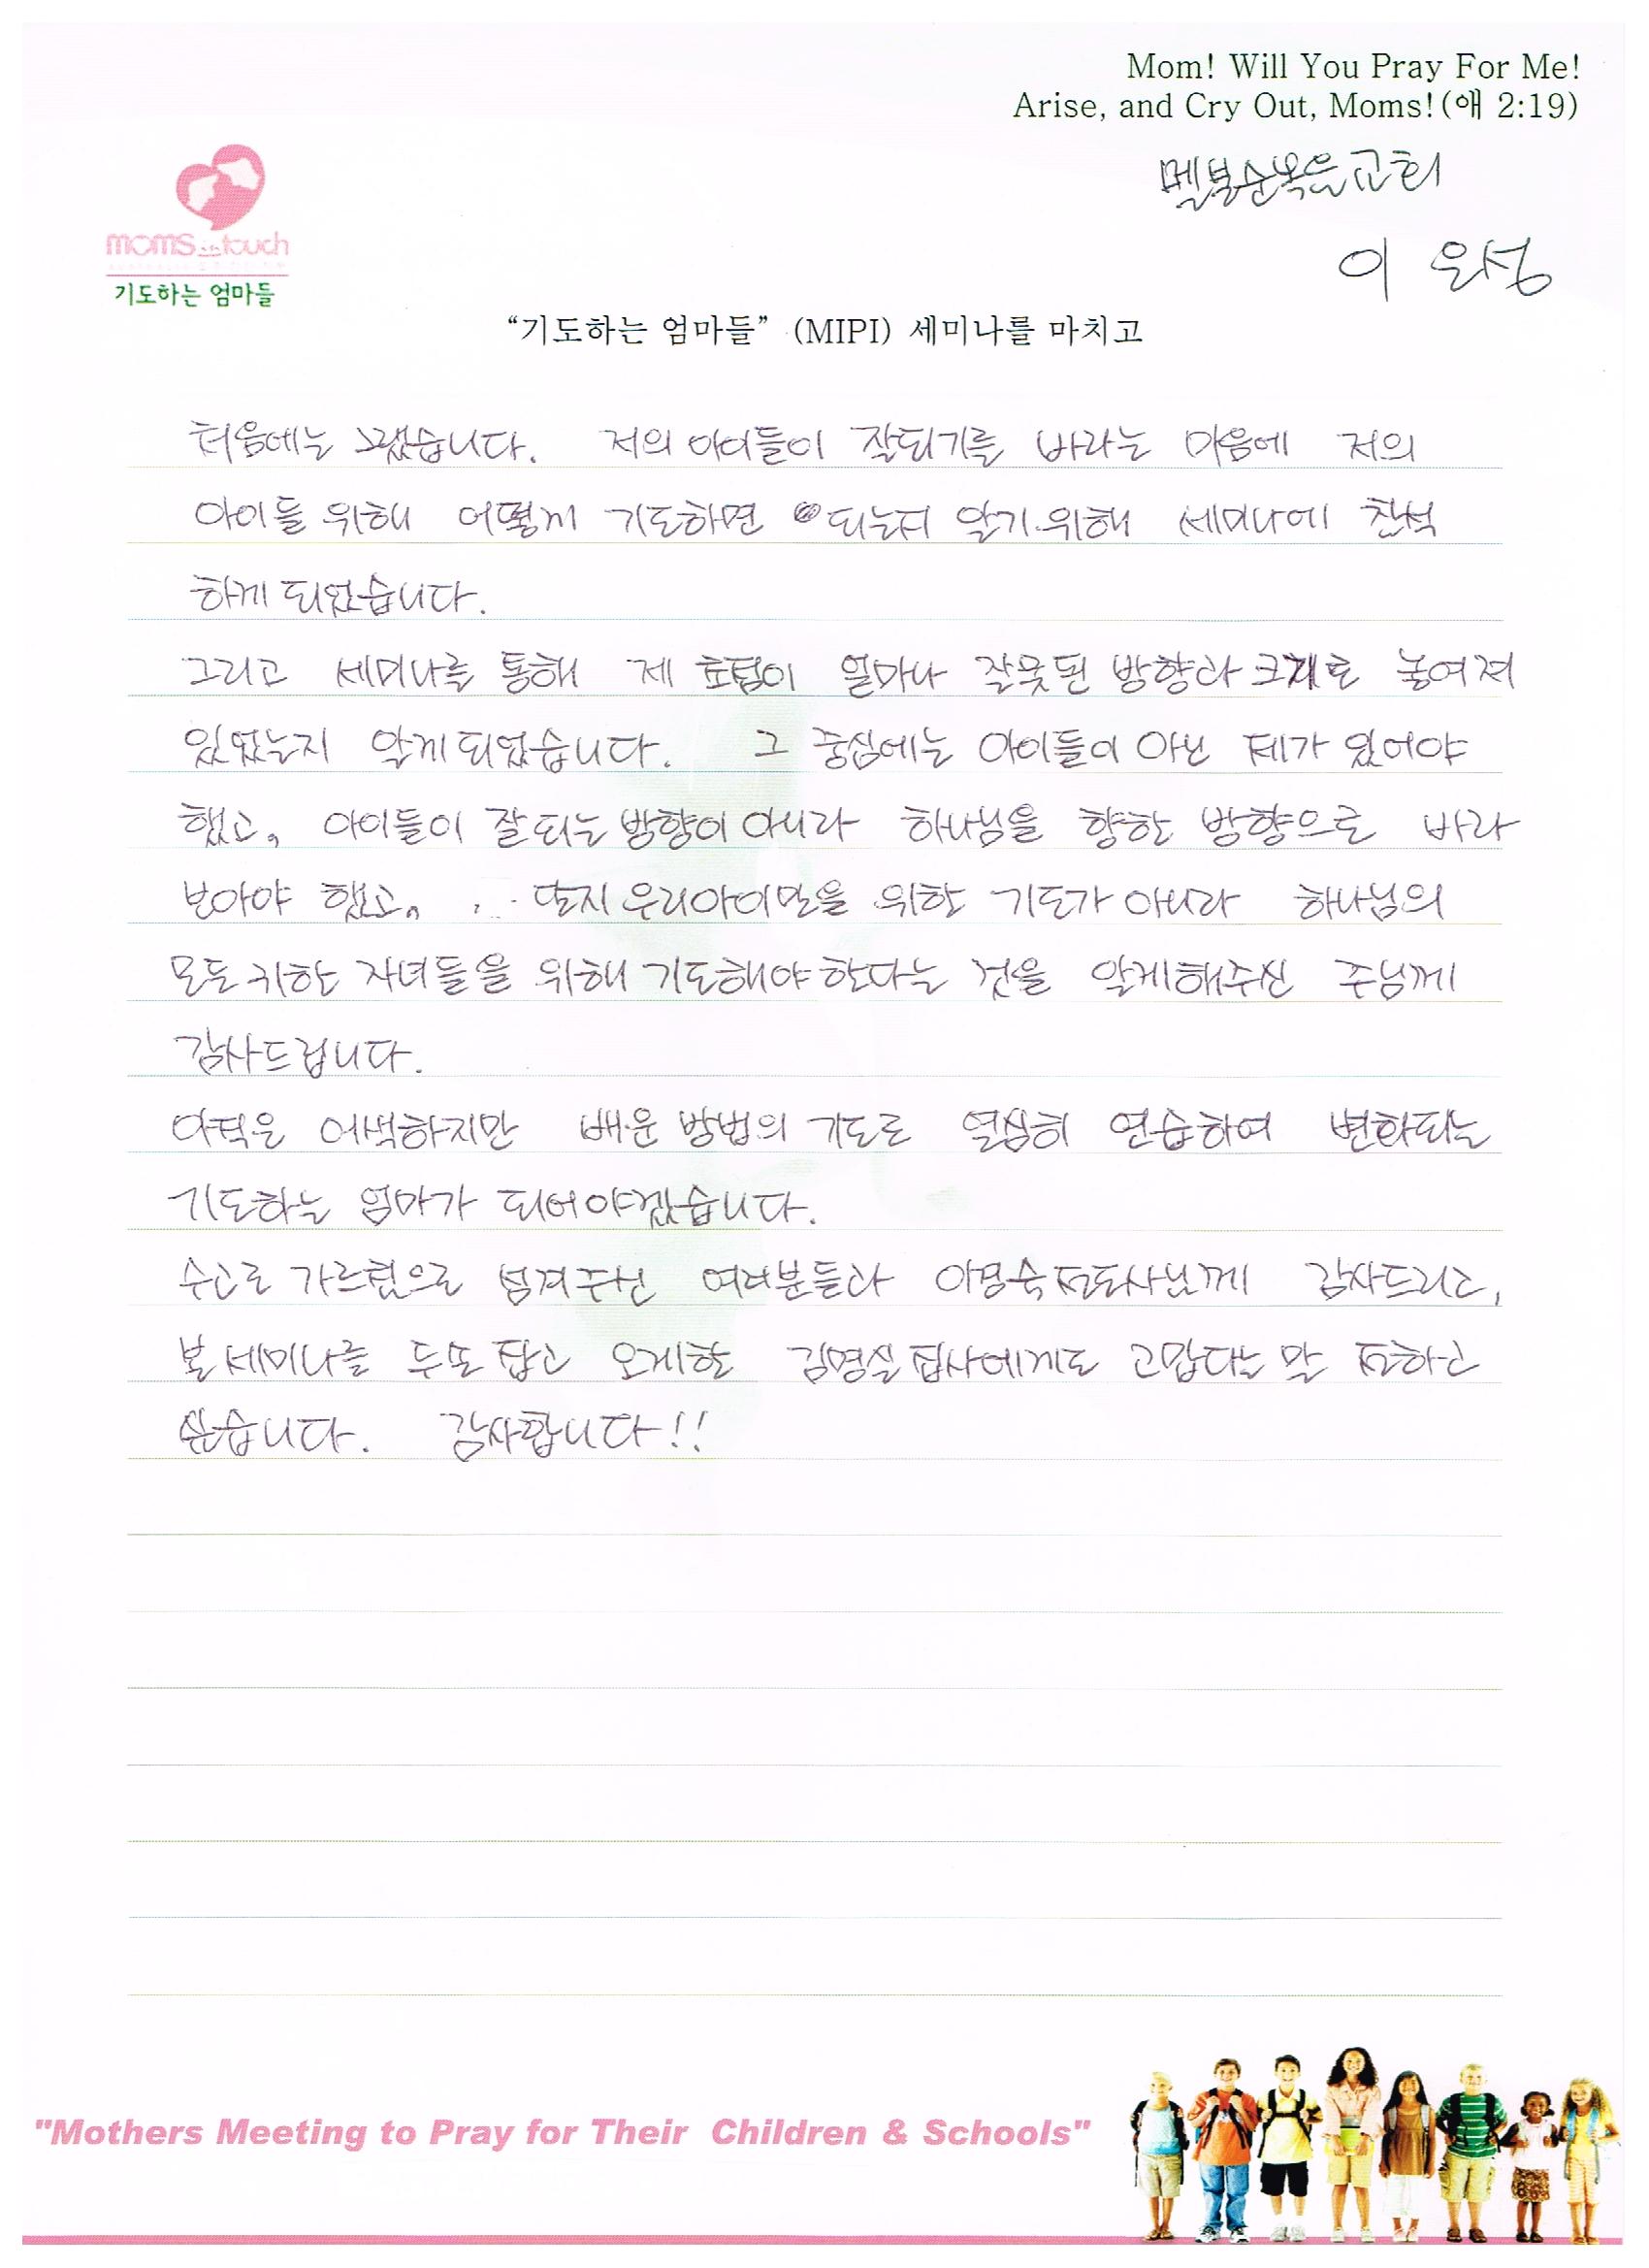 Mom! Will You Pray For Me!
Arise, and Cry Out, Moms!(애 2:19)
멜본순복음교회
이 은성
moms in touch
기도하는 엄마들
“기도하는 엄마들” (MIPI) 세미나를 마치고
처음에는 그랬습니다. 저의 아이들이 잘되기를 바라는 마음에 저의
아이들 위해 어떻게 기도하면 되는지 알기위해 세미나에 참석
하게 되었습니다.
그리고 세미나를 통해 제 초점이 얼마나 잘못된 방향과 크기로 놓여져
있었는지 알게되었습니다. 그 중심에는 아이들이 아닌 제가 있어야
했고, 아이들이 잘 되는 방향이 아니라 하나님을 향한 방향으로 바라
보아야 했고, 단지 우리아이만을 위한 기도가 아니라 하나님의
모든 귀한 자녀들을 위해 기도해야 한다는 것을 알게해주신 주님께
감사드립니다.
아직은 어색하지만 배운 방법의 기도로 열심히 연습하여 변화되는
기도하는 엄마가 되어야겠습니다.
수고로 가르침으로 섬겨주신 여러분들과 이명숙전도사님께 감사드리고,
본 세미나를 두또 잡고 오게한 김명실집사에게도 고맙다는 말 전하고
싶습니다. 감사합니다!!
"Mothers Meeting to Pray for Their Children & Schools"